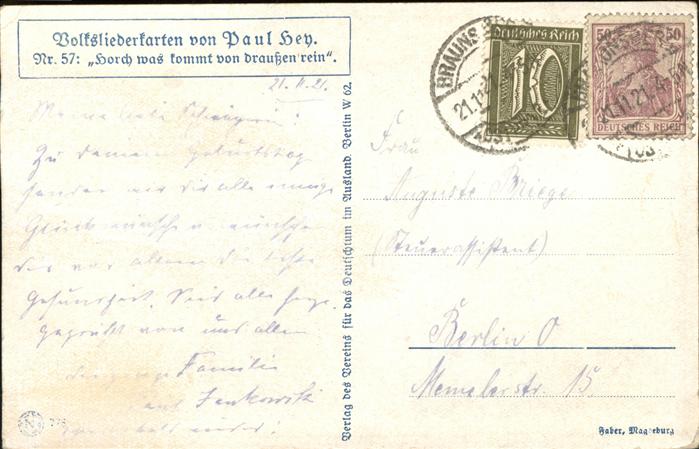 Volksliederkarten von Paul Hey.
Nr. 57: „Horch was kommt von draußen rein".
21. 11. 21.
Meine liebe Schwägerin!
Zu Deinem Geburtstag
senden wir dir alle innige
Glückwünsche u. wünschen
dir vor allem die beste
Gesundheit. Seid alle
gegrüßt von uns allen
Familie
Jankowski
Verlag des Vereins für das Deutschtum im Ausland. Berlin W 62.
Deutsches Reich
10
50 50
DEUTSCHES REICH
BRAUNS
21.11.21.
21.11.21. 4-
(OST
Frau
Auguste Briege
(Steuerassistent)
Berlin O
Memelerstr. 15.
Faber, Magdeburg